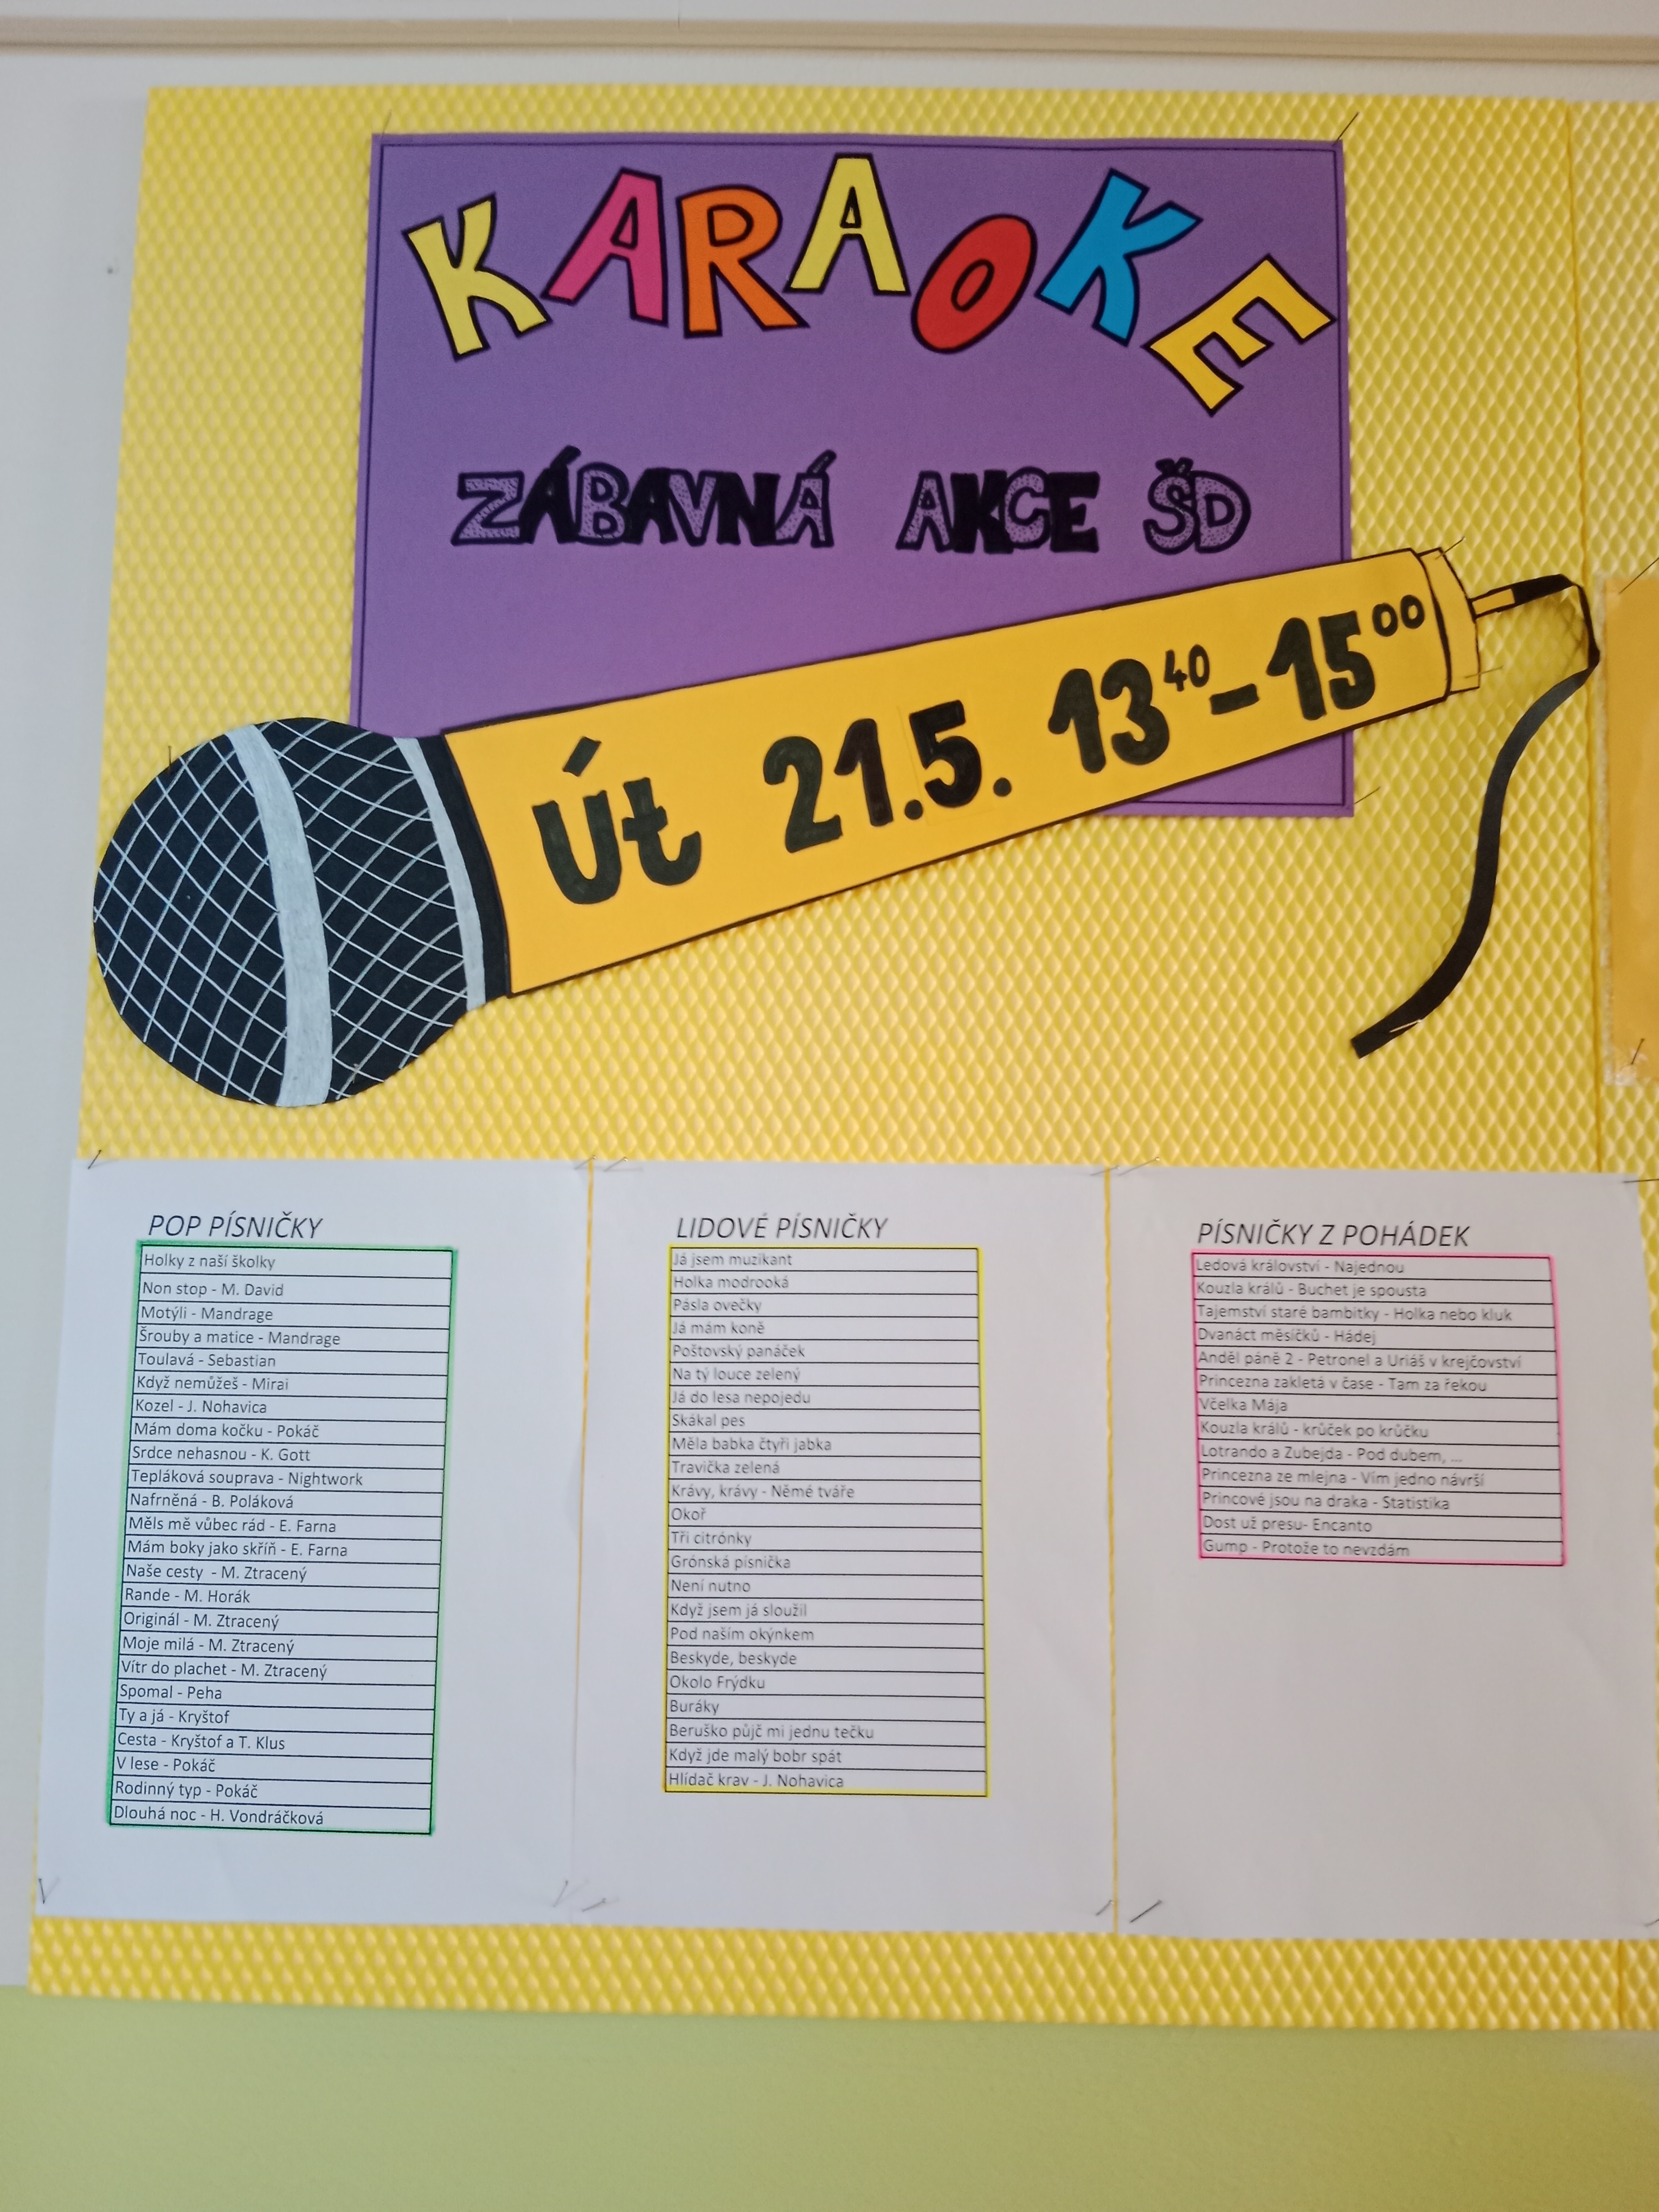 KARAOKE
ZÁBAVNÁ AKCE ŠD
Út 21.5. 13⁴⁰-15⁰⁰
POP PÍSNIČKY
Holky z naší školky
Non stop - M. David
Motýli - Mandrage
Šrouby a matice - Mandrage
Toulavá - Sebastian
Když nemůžeš - Mirai
Kozel - J. Nohavica
Mám doma kočku - Pokáč
Srdce nehasnou - K. Gott
Tepláková souprava - Nightwork
Nafrněná - B. Poláková
Měls mě vůbec rád - E. Farna
Mám boky jako skříň - E. Farna
Naše cesty - M. Ztracený
Rande - M. Horák
Originál - M. Ztracený
Moje milá - M. Ztracený
Vítr do plachet - M. Ztracený
Spomal - Peha
Ty a já - Kryštof
Cesta - Kryštof a T. Klus
V lese - Pokáč
Rodinný typ - Pokáč
Dlouhá noc - H. Vondráčková
LIDOVÉ PÍSNIČKY
Já jsem muzikant
Holka modrooká
Pásla ovečky
Já mám koně
Poštovský panáček
Na tý louce zelený
Já do lesa nepojedu
Skákal pes
Měla babka čtyři jabka
Travička zelená
Krávy, krávy - Němé tváře
Okoř
Tři citrónky
Grónská písnička
Není nutno
Když jsem já sloužil
Pod naším okýnkem
Beskyde, beskyde
Okolo Frýdku
Buráky
Beruško půjč mi jednu tečku
Když jde malý bobr spát
Hlídač krav - J. Nohavica
PÍSNIČKY Z POHÁDEK
Ledová království - Najednou
Kouzla králů - Buchet je spousta
Tajemství staré bambitky - Holka nebo kluk
Dvanáct měsíčků - Hádej
Anděl páně 2 - Petronel a Uriáš v krejčovství
Princezna zakletá v čase - Tam za řekou
Včelka Mája
Kouzla králů - krůček po krůčku
Lotrando a Zubejda - Pod dubem, ...
Princezna ze mlejna - Vím jedno návrší
Princové jsou na draka - Statistika
Dost už presu- Encanto
Gump - Protože to nevzdám